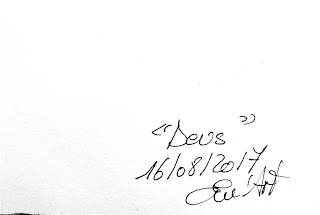 "Deus"
16/08/2017